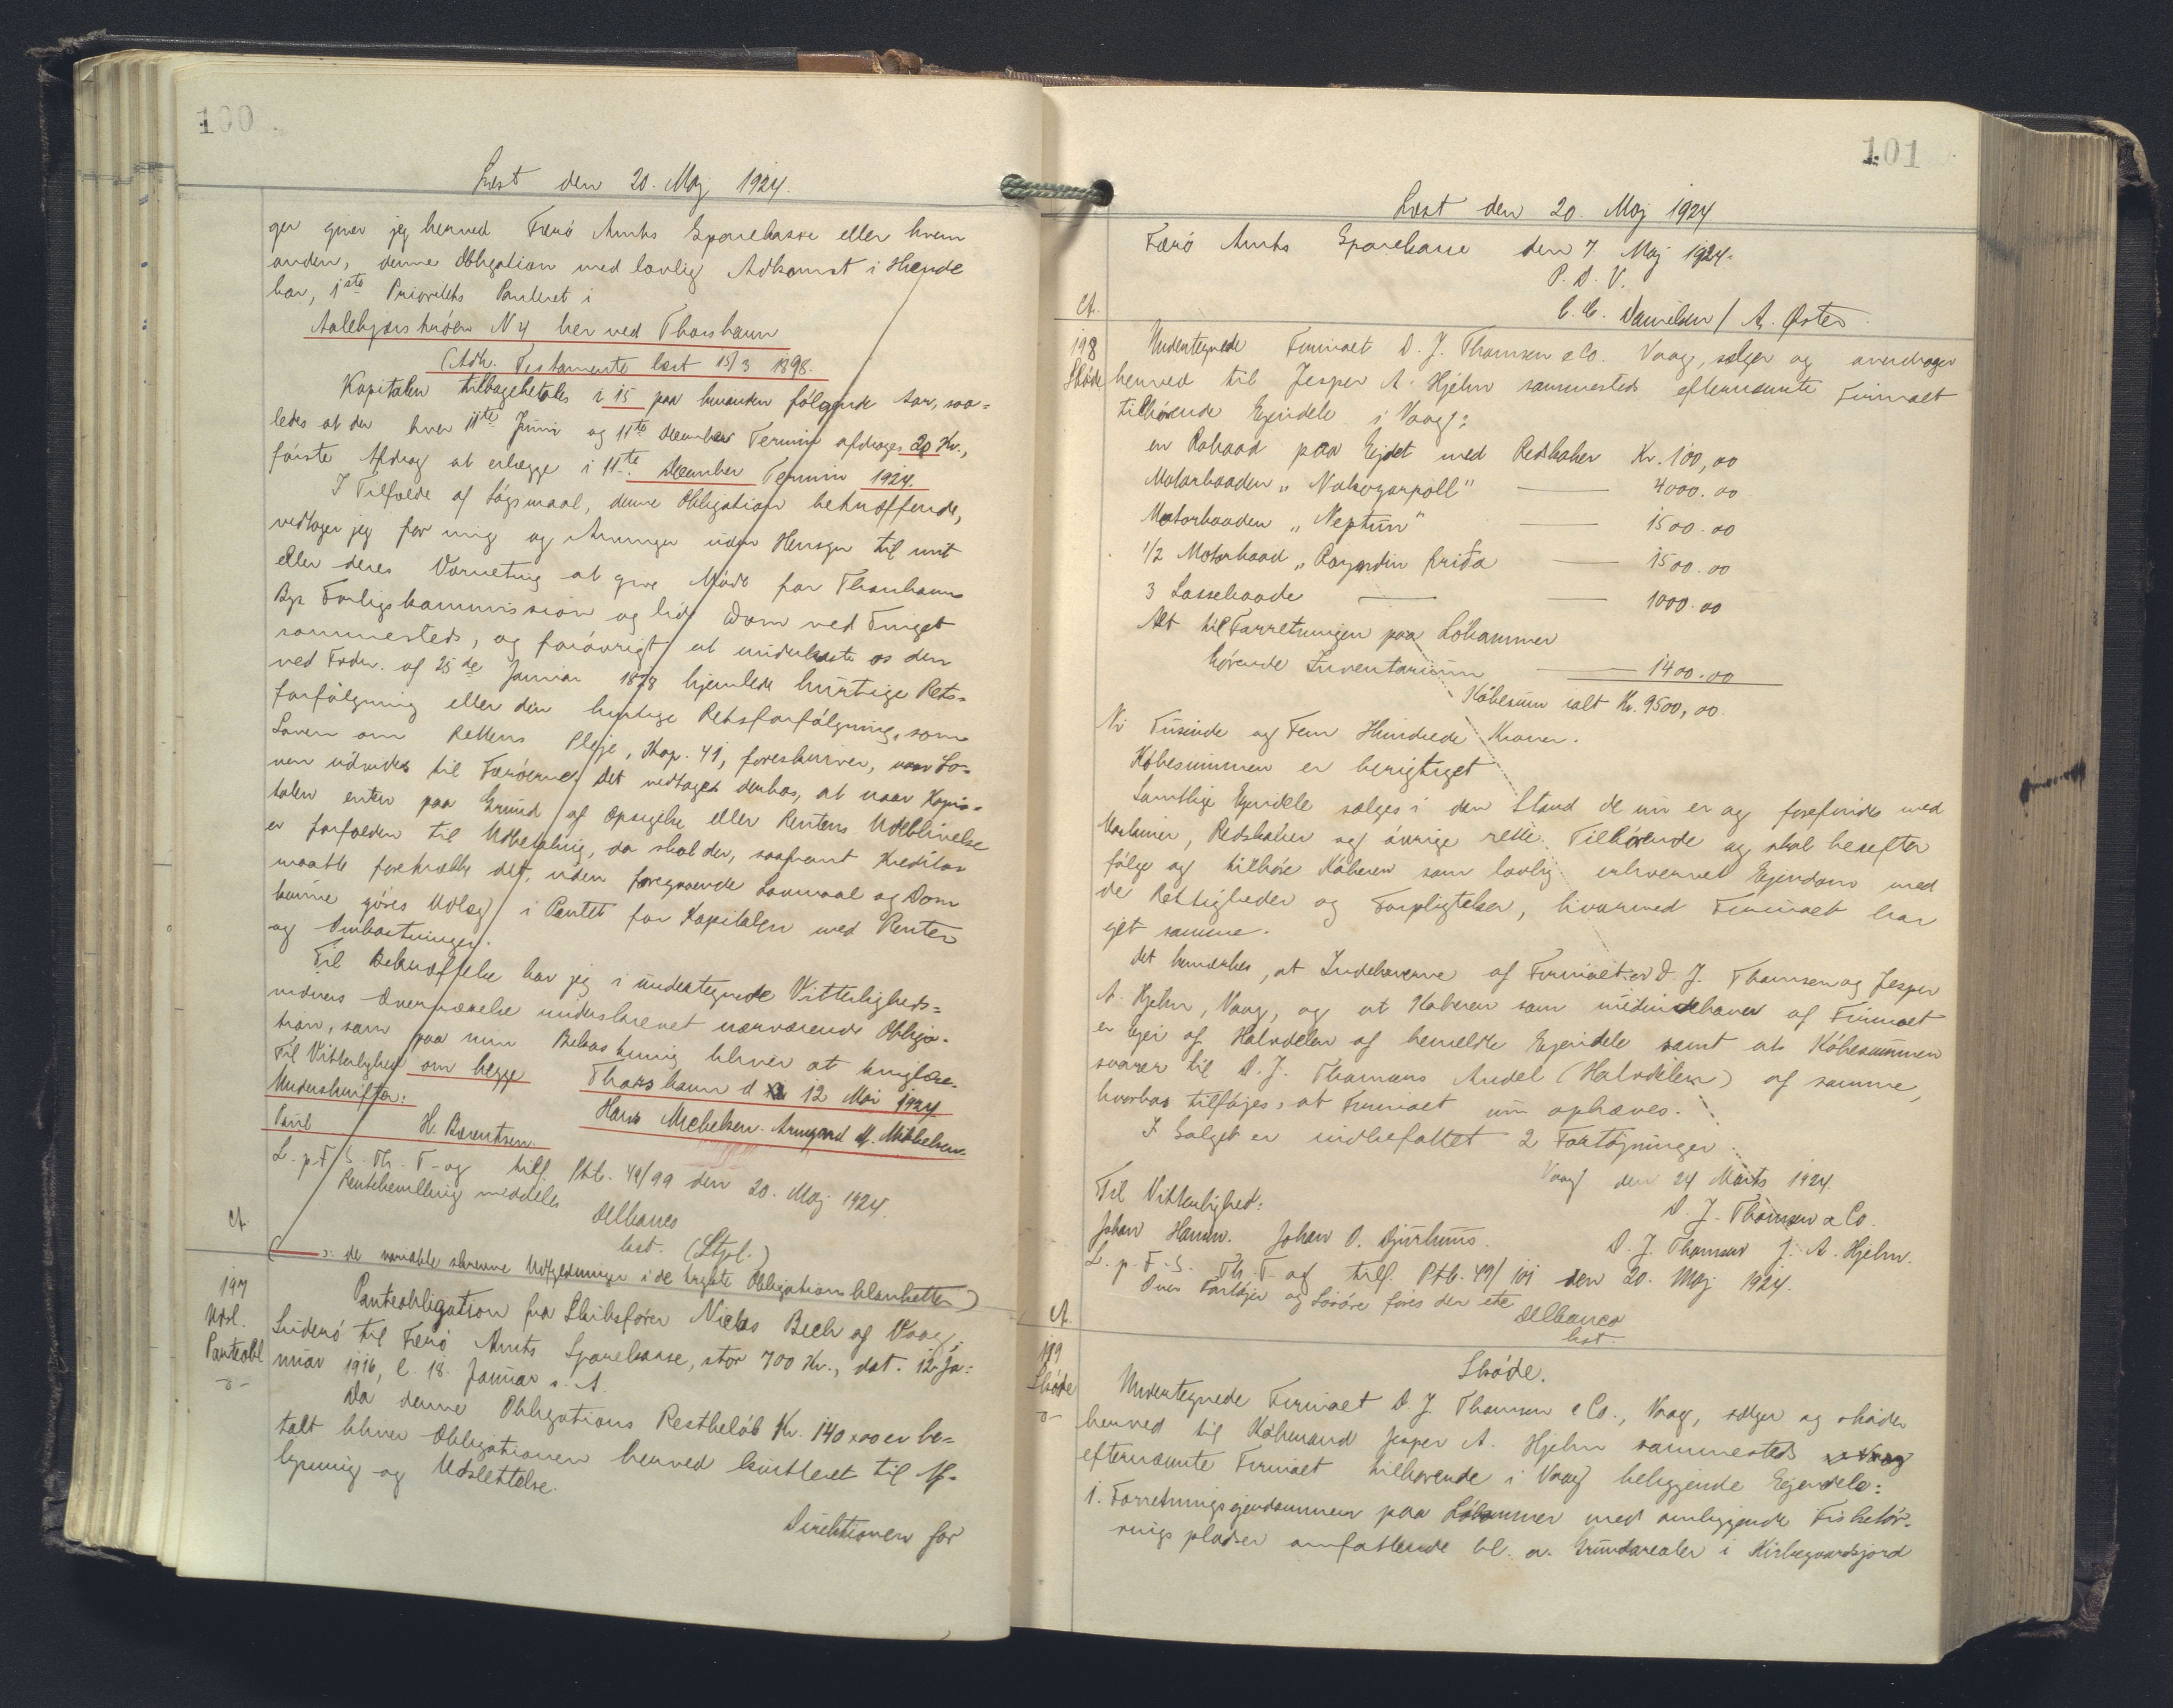 100
Læst den 20. Maj 1924.
ger giver jeg herved Færö Amts Sparekasse eller hvem
anden, denne Obligation med lovlig Adkomst i Hænde
har, 1ste Prioritets Panteret i
N 4 her ved Thorshavn
(Adk. Testamente læst 15/3 1898.
Kapitalen tilbagebetales i 15 paa hinanden fölgende Aar, saa=
ledes at der hver 11te Juni og 11te December Termin afdrages 20 Kr.,
förste Afdrag at erlægge i 11te December Termin 1924.
I Tilfælde af Sögsmaal, denne Obligation betræffende,
vedtager jeg for mig og Arvinger uden Hensyn til mit
eller deres Værneting at give Möde for Thorshavns
Byes Forligskommission og lide Dom ved Tinget
sammesteds, og forövrigt at underkaste os den
ved Frdn. af 25de Januar 1828 hjemlede hurtige Rets=
forfölgning eller den hurtige Retsforfölgning, som
Loven om Rettens Pleje, Kap. 41, foreskriver, naar Lo=
ven udvides til Færöerne, det vedtages derhos, at naar Kapi=
talen enten paa Grund af Opsigelse eller Rentens Udeblivelse
er forfalden til Udbetaling, da skal der, saafremt Kreditor
maatte foretrække det, uden foregaaende Lovmaal og Dom
kunne göres Udlæg i Pantet for Kapitalen med Renter
og Omkostninger.
Til Bekræftelse har jeg i undertegnede Vitterligheds=
vidners Overværelse underskrevet nærværende Obliga=
tion, som paa min Bekostning bliver at tinglæse.
Til Vitterlighed om begge Thorshavn d 12 Mai 1924.
Underskrifter: Hans Michelsen. Armgard M. Michelsen.
Poul H. Berentsen.
L. p. F. S. Th. T. og tilf. Ptb. 49/99 den 20. Maj 1924.
Retsbevilling meddeles
Delbanco
kst. (Stpl.)
A.
(——ɔ: de variable skrevne Udfyldninger i de trykte Obligationsblanketter)
197
Udsl.
Panteobl
-o-
Panteobligation fra Skibsförer Niclas Bech af Vaag,
Suderö til Færö Amts Sparekasse, stor 700 Kr., dat. 12. Ja=
nuar 1916, l. 18. Januar s. A.
Da denne Obligations Restbelöb Kr. 140 x 00 er be=
talt bliver Obligationen herved kvitteret til Af=
lysning og Udslettelse.
Direktionen for
101
Læst den 20. Maj 1924
Færö Amts Sparekasse den 7. Maj 1924.
P. D. V.
C. C. Danielsen / A. Öster
A.
198
Sköde
Undertegnede Firmaet D. J. Thomsen & Co. Vaag, sælger og overdrager
herved til Jesper A. Hjelm sammesteds efternævnte Firmaet
tilhörende Ejendele i Vaag:
en Robaad paa Ejdet med Redskaber Kr. 100,00
Motorbaaden „ —— 4000.00
Motorbaaden „Neptun" —— 1500.00
1/2 Motorbaad „ frida —— 1500.00
3 Lossebaade —— —— 1000.00
Alt til Forretningen paa Löhammer
hörende Inventarium —— 1400.00
Köbesum ialt Kr. 9500,00.
Ni Tusinde og Fem Hundrede Kroner.
Köbesummen er berigtiget
Samtlige Ejendele sælges i den Stand de nu er og forefindes med
Maskiner, Redskaber og övrige rette Tilhörende og skal herefter
fölge og tilhöre Köberen som lovlig erhvervet Ejendom med
de Rettigheder og Forpligtelser, hvormed Firmaet har
ejet samme.
Det bemærkes, at Indehaverne af Firmaet er D. J. Thomsen og Jesper
A. Hjelm, Vaag, og at Köberen som medindehaver af Firmaet
er Ejer af Halvdelen af bemeldte Ejendele samt at Köbesummen
svarer til D. J. Thomsens Andel (Halvdelen) af samme,
hvorhos tilföjes, at Firmaet nu ophæves.
I Salget er indbefattet 2 Fortöjninger.
Vaag den 24 Marts 1924.
Til Vitterlighed: D. J. Thomsen & Co.
Johan Hansen. Johan O. Djurhuus. D. J. Thomsen J. A. Hjelm.
L. p. F. S. Th. T. og tilf. Ptb. 49/101 den 20. Maj 1924.
Over Fartöjer og Lösöre föres der ikke
Delbanco
kst.
A.
199
Sköde
-o-
Sköde.
Undertegnede Firmaet D. J. Thomsen & Co., Vaag, sælger og sköder
herved til Köbmand Jesper A. Hjelm sammesteds
efternævnte Firmaet tilhörende i Vaag beliggende Ejendele:
1. Forretningsejendommen paa Löhammer med omliggende Fisketör=
rings pladser omfattende bl. a. Grundarealer i Kirkegaardsjord